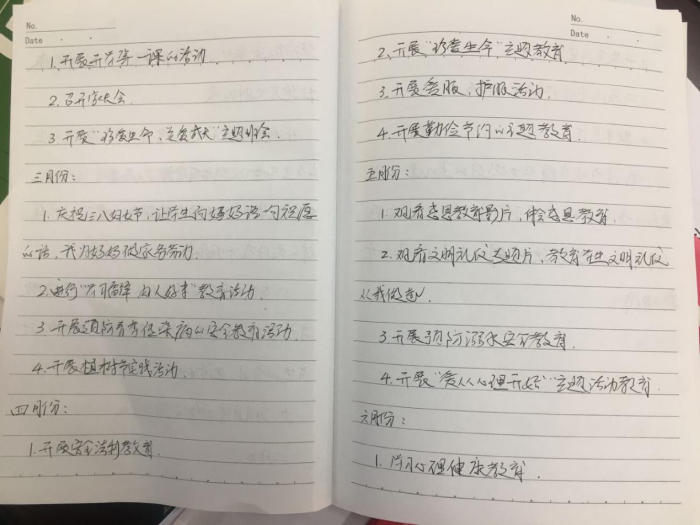 No.
Date
1.开展开学第一课的活动
2.召开家长会
3.开展"珍爱生命、"主题班会
三月份：
1.庆祝三八妇女节，让学生向妈妈说一句祝愿
的话，我为妈妈做家务劳动。
2.进行"教育活动.
3.开展预防春季传染病的安全教育活动.
4.开展植树节实践活动.
四月份：
1.开展安全法制教育.
No.
Date
2.开展"珍爱生命"主题教育.
3.开展爱眼，护眼活动.
4.开展勤俭节约的主题教育.
五月份：
1.观看感恩教育影片，感恩教育.
2.观看文明礼仪专题片，教育学生文明礼仪
从我做起.
3.开展预防溺水安全教育.
4.开展"心理"主题活动教育.
六月份：
1.心理健康教育.